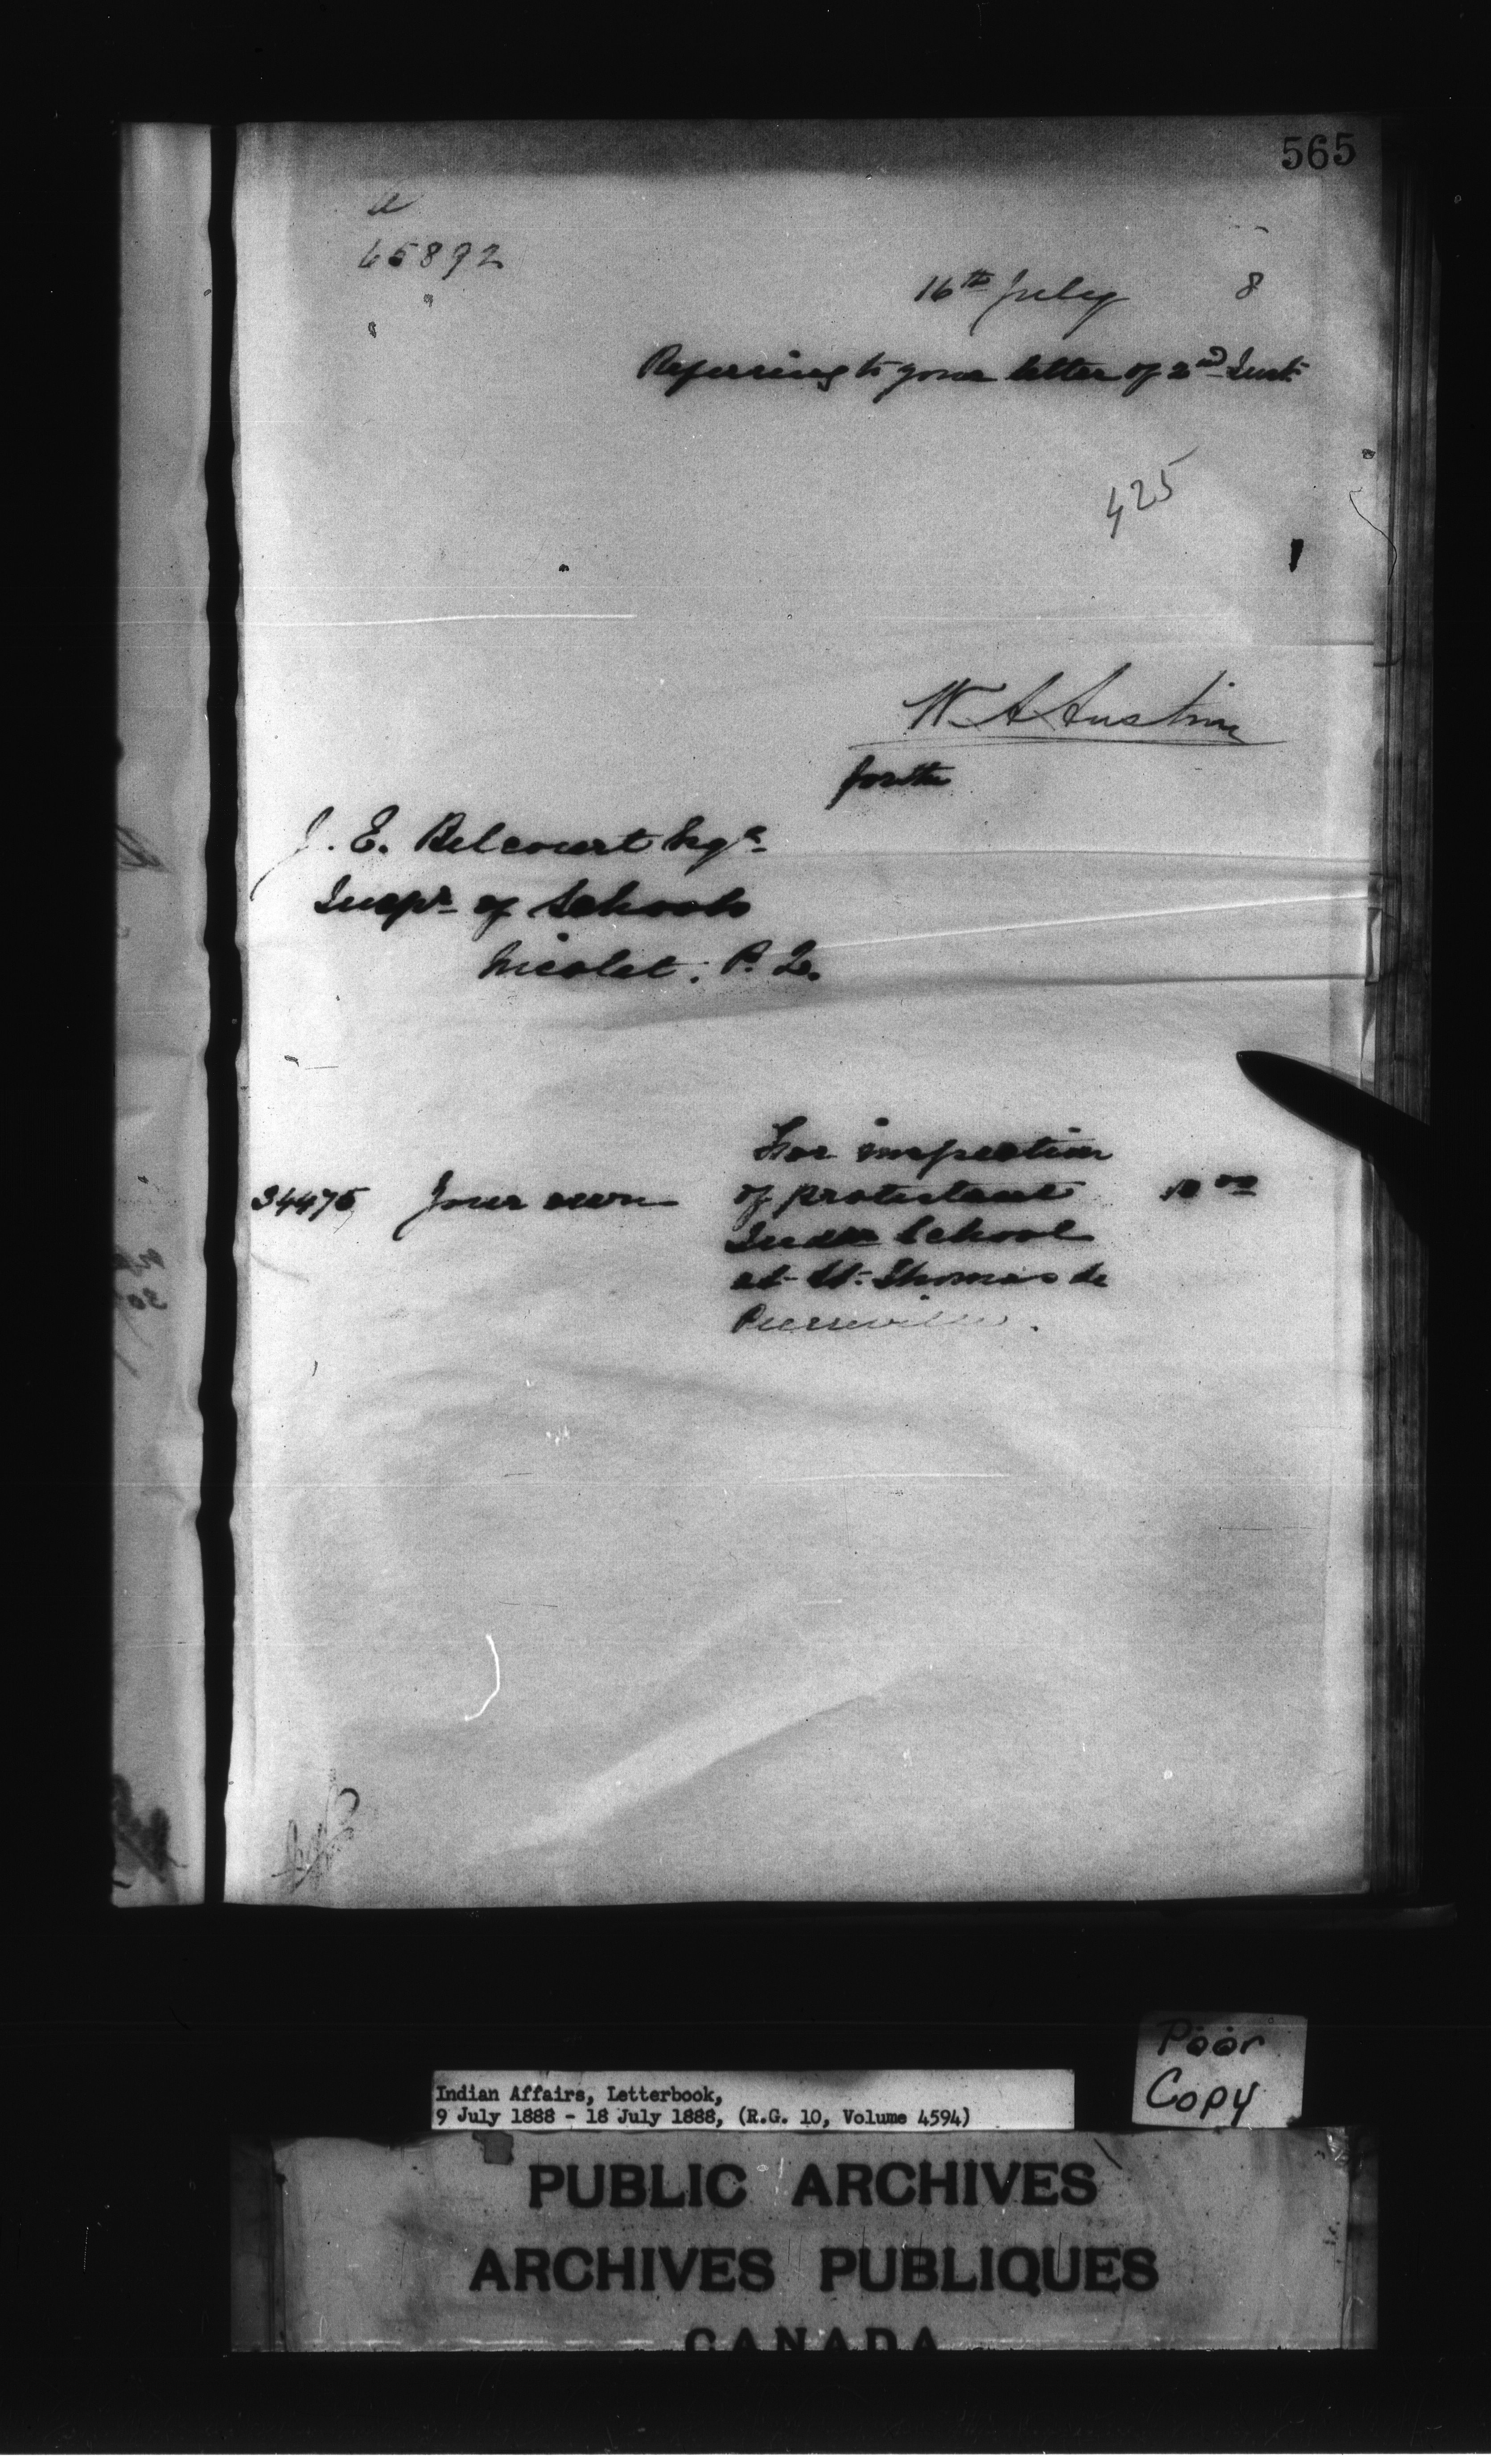 565
65892
16th July 8
Referring to your letter of 2nd Inst.
425
W. A Austin
for the
J. E. Belcourt Esqr.
Inspr. of Schools
Nicolet. P. Q.
For inspection
34475 Your own of protestant 10 00
Indn School
at St. Thomas de
Pierreville.
Poor
Copy
Indian Affairs, Letterbook,
9 July 1888 - 18 July 1888, (R.G. 10, Volume 4594)
PUBLIC ARCHIVES
ARCHIVES PUBLIQUES
CANADA